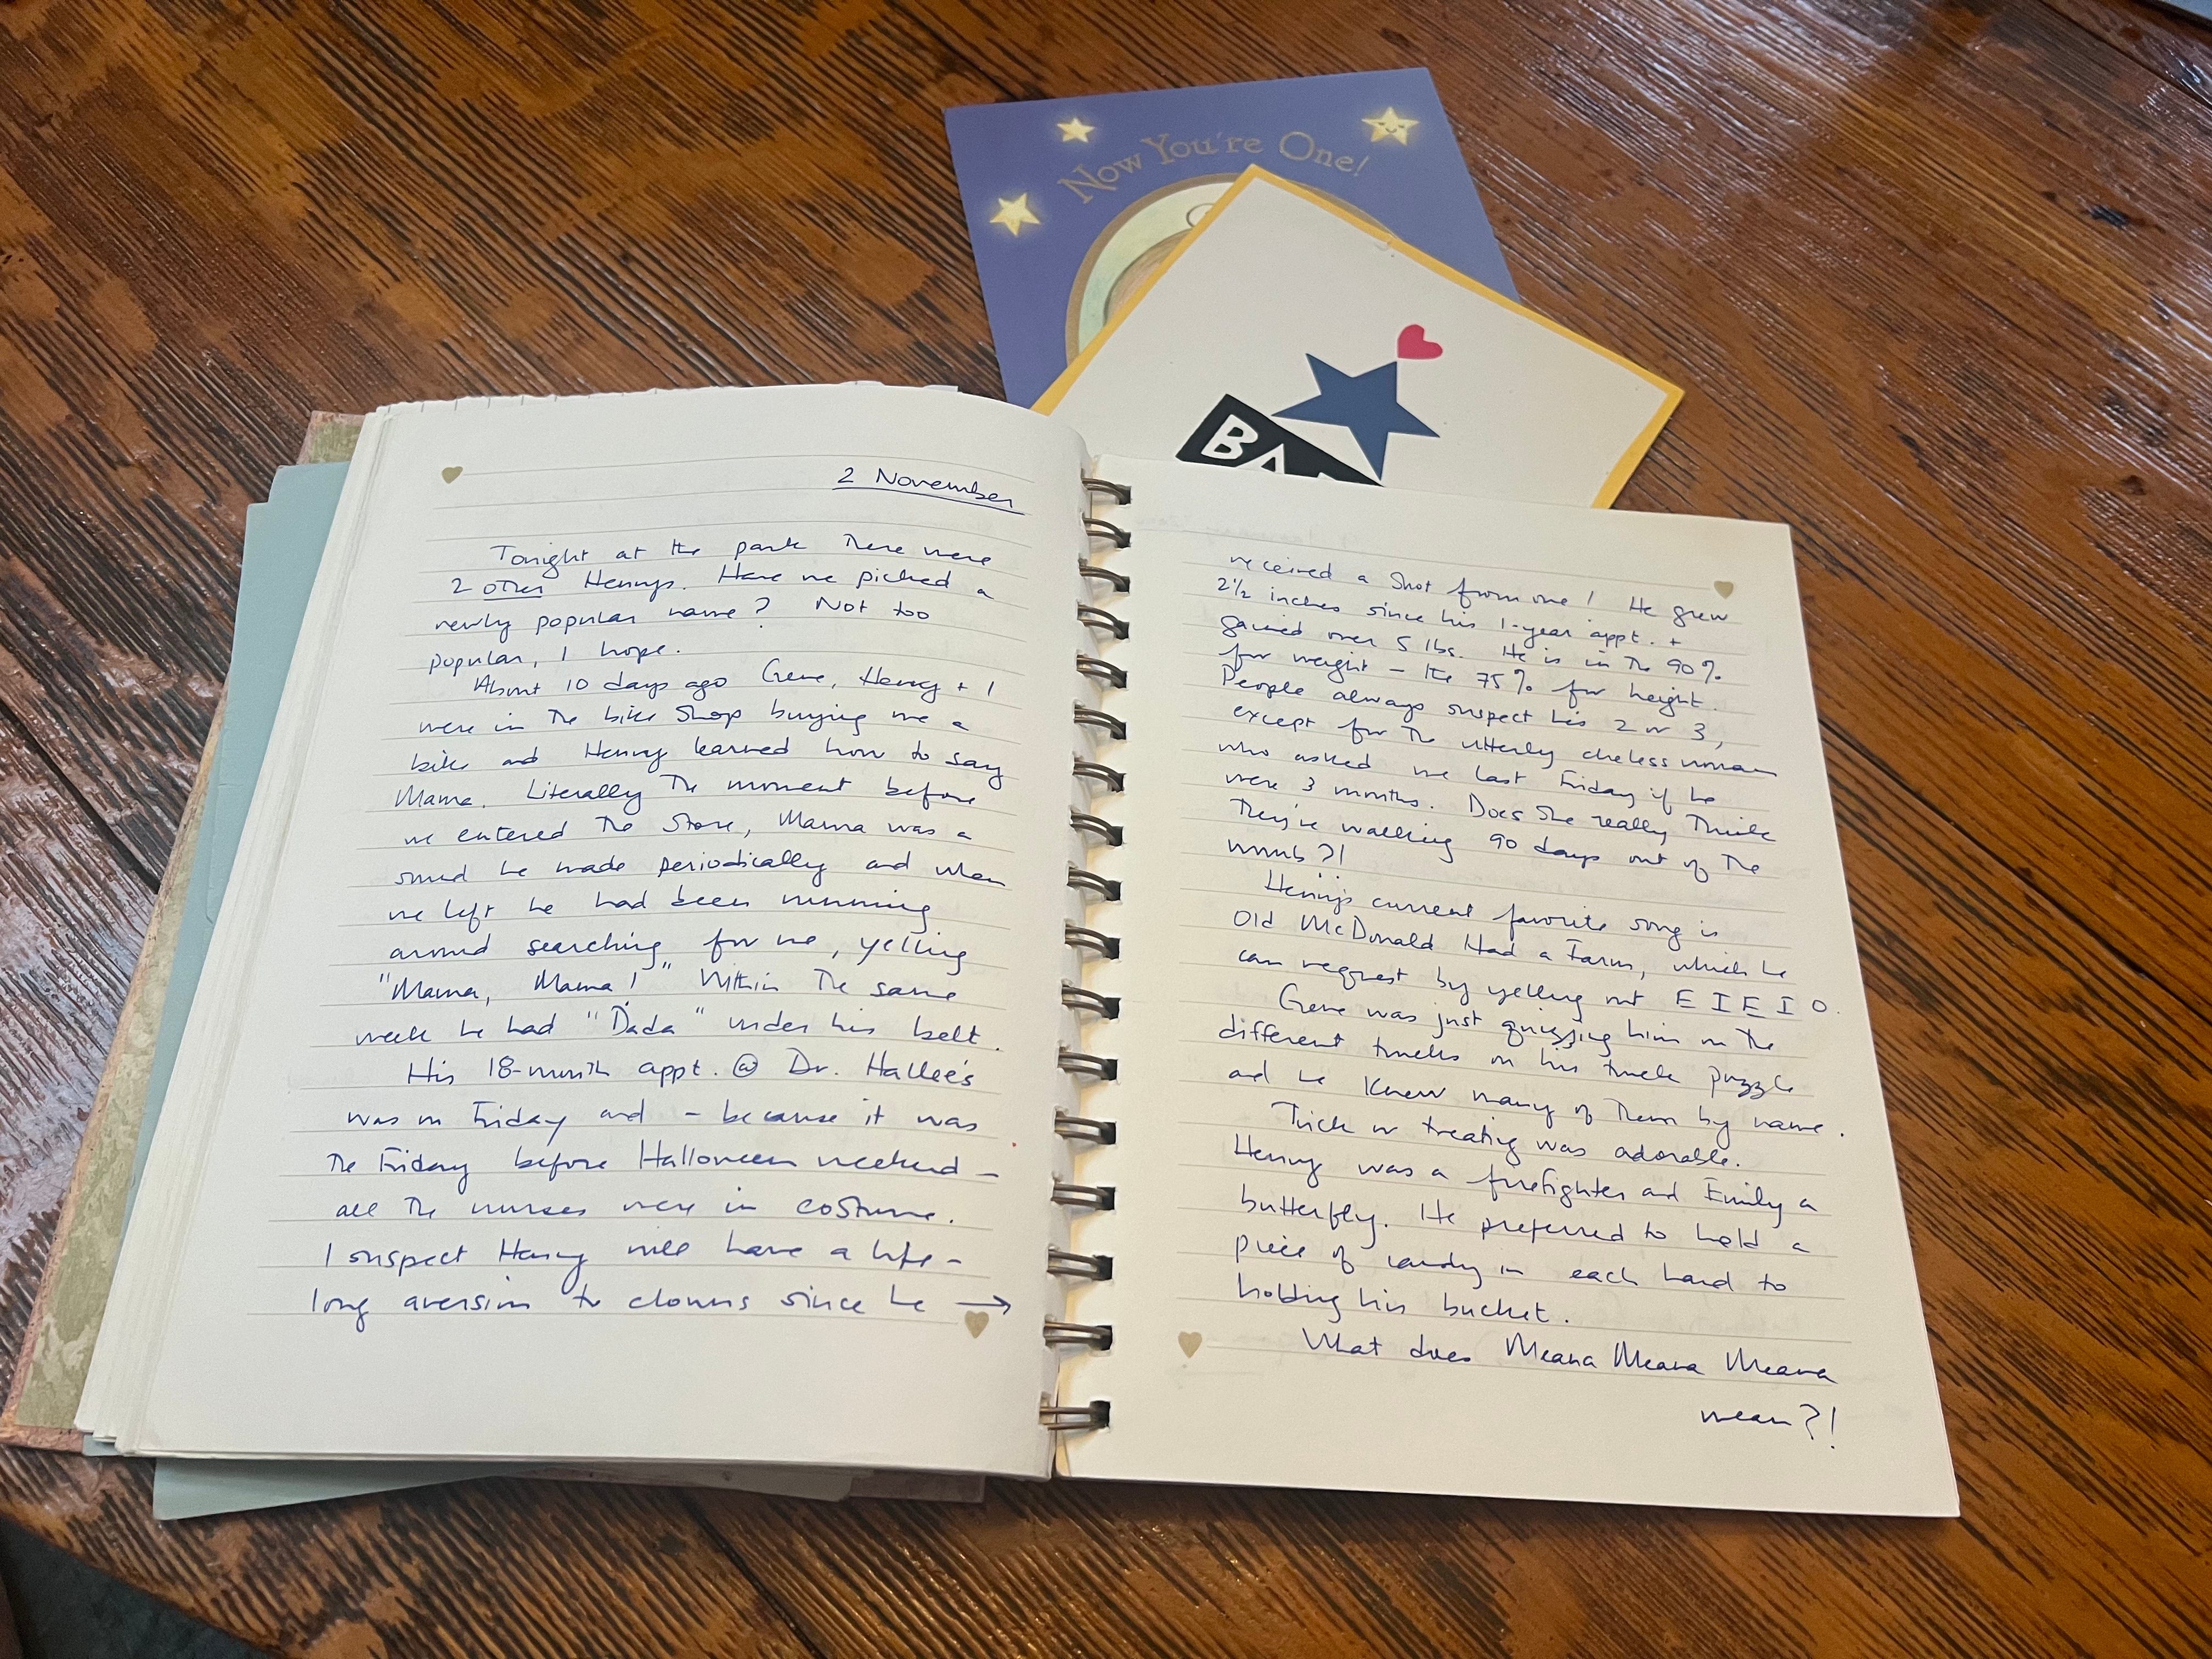 Now You're One!
BA
2 November
Tonight at the park there were
2 other Henrys. Have we picked a
newly popular name? Not too
popular, I hope.
About 10 days ago Gene, Henry + I
were in the bike shop buying me a
bike and Henry learned how to say
Mama. Literally the moment before
we entered the store, Mama was a
sound he made periodically and when
we left he had been running
around searching for me, yelling
"Mama, Mama!" Within the same
week he had "Dada" under his belt.
His 18-month appt. @ Dr. Hallee's
was on Friday and - because it was
the Friday before Halloween weekend -
all the nurses were in costume.
I suspect Henry will have a life-
long aversion to clowns since he →
received a shot from one! He grew
2½ inches since his 1-year appt. +
gained over 5 lbs. He is in the 90%
for weight - the 75% for height.
People always suspect his 2 or 3,
except for the utterly clueless woman
who asked me last Friday if he
were 3 months. Does she really think
they're walking 90 days out of the
womb?!
Henry's current favorite song is
Old McDonald Had a Farm, which he
can request by yelling out E I E I O.
Gene was just quizzing him on the
different trucks on his truck puzzle
and he knew many of them by name.
Trick or treating was adorable.
Henry was a firefighter and Emily a
butterfly. He preferred to hold a
piece of candy in each hand to
holding his bucket.
What does Meana Meana Meana
mean?!